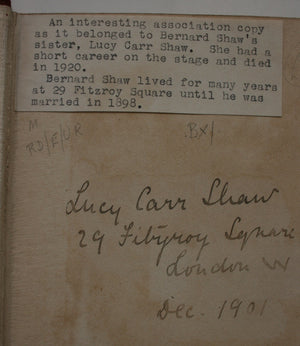 An interesting association copy
as it belonged to Bernard Shaw's
sister, Lucy Carr Shaw. She had a
short career on the stage and died
in 1920.
Bernard Shaw lived for many years
at 29 Fitzroy Square until he was
married in 1898.
M
RD/E/UR
BX/
Lucy Carr Shaw
29 Fitzroy Square
London W
Dec. 1901